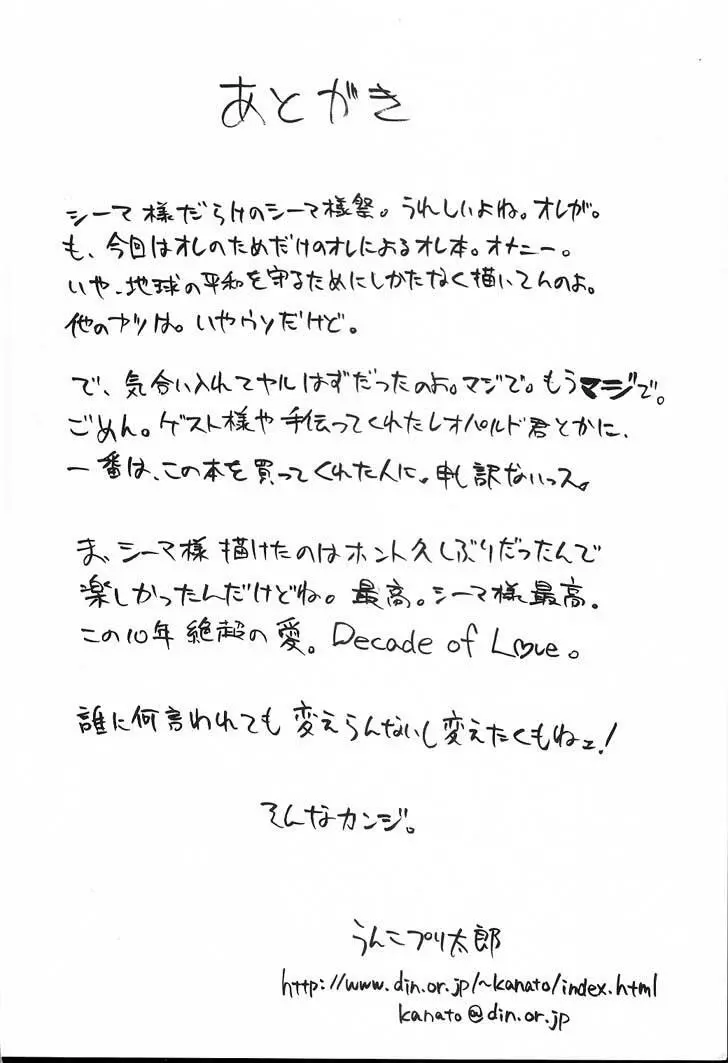 あとがき
シーマ様だらけのシーマ様祭。うれしいよね。オレが。
も、今回はオレのためだけのオレによるオレ本。オナニー。
いや、地球の平和を守るためにしかたなく描いてんのよ。
他のヤツは。いやウソだけど。
で、気合い入れてヤルはずだったのよ。マジで。もうマジで。
ごめん。ゲスト様や手伝ってくれたレオパルド君とかに、
一番は、この本を買ってくれた人に。申し訳ないっス。
ま、シーマ様描けたのはホント久しぶりだったんで
楽しかったんだけどね。最高。シーマ様最高。
この10年絶超の愛。Decade of L♡ve。
誰に何言われても変えらんないし変えたくもねェ!
そんなカンジ。
うんこプリ太郎
http://www.din.or.jp/~kanato/index.html
kanato@din.or.jp